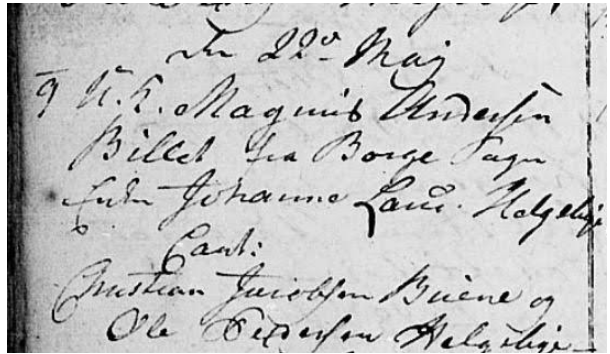 den 22de Maj
9 U. K. Magnus Andersen
Billet fra Borge Sogn
Enke Johanne Laus. Helgelije
Caut:
Christian Jacobsen Buene og
Ole Pedersen Helgelije